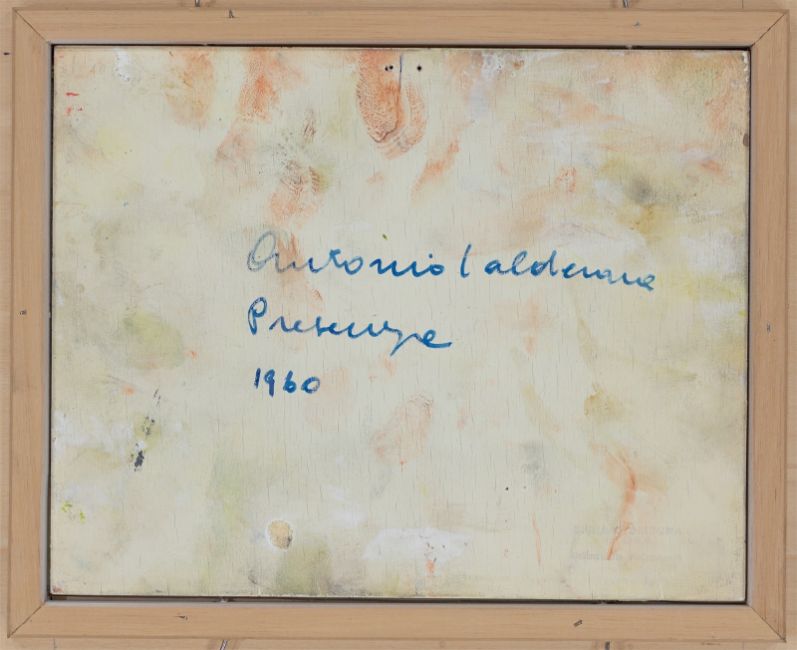 Antonio Calderara
Presenze
1960